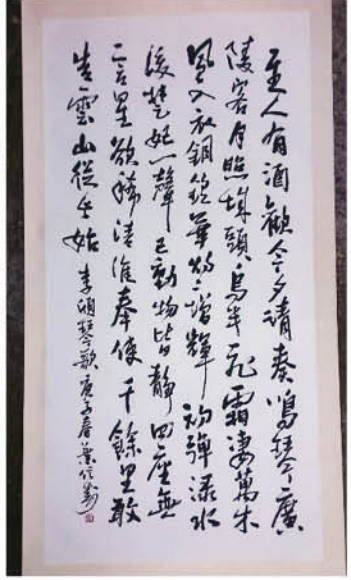 主人有酒歡今夕請奏鳴琴廣
陵客月照城頭烏半飛霜淒萬木
風入衣銅鑪華燭燭增輝初彈淥水
後楚妃一聲已動物皆靜四座無
言星欲稀清淮奉使千餘里敢
告雲山從此始 李頎琴歌 庚子春葉